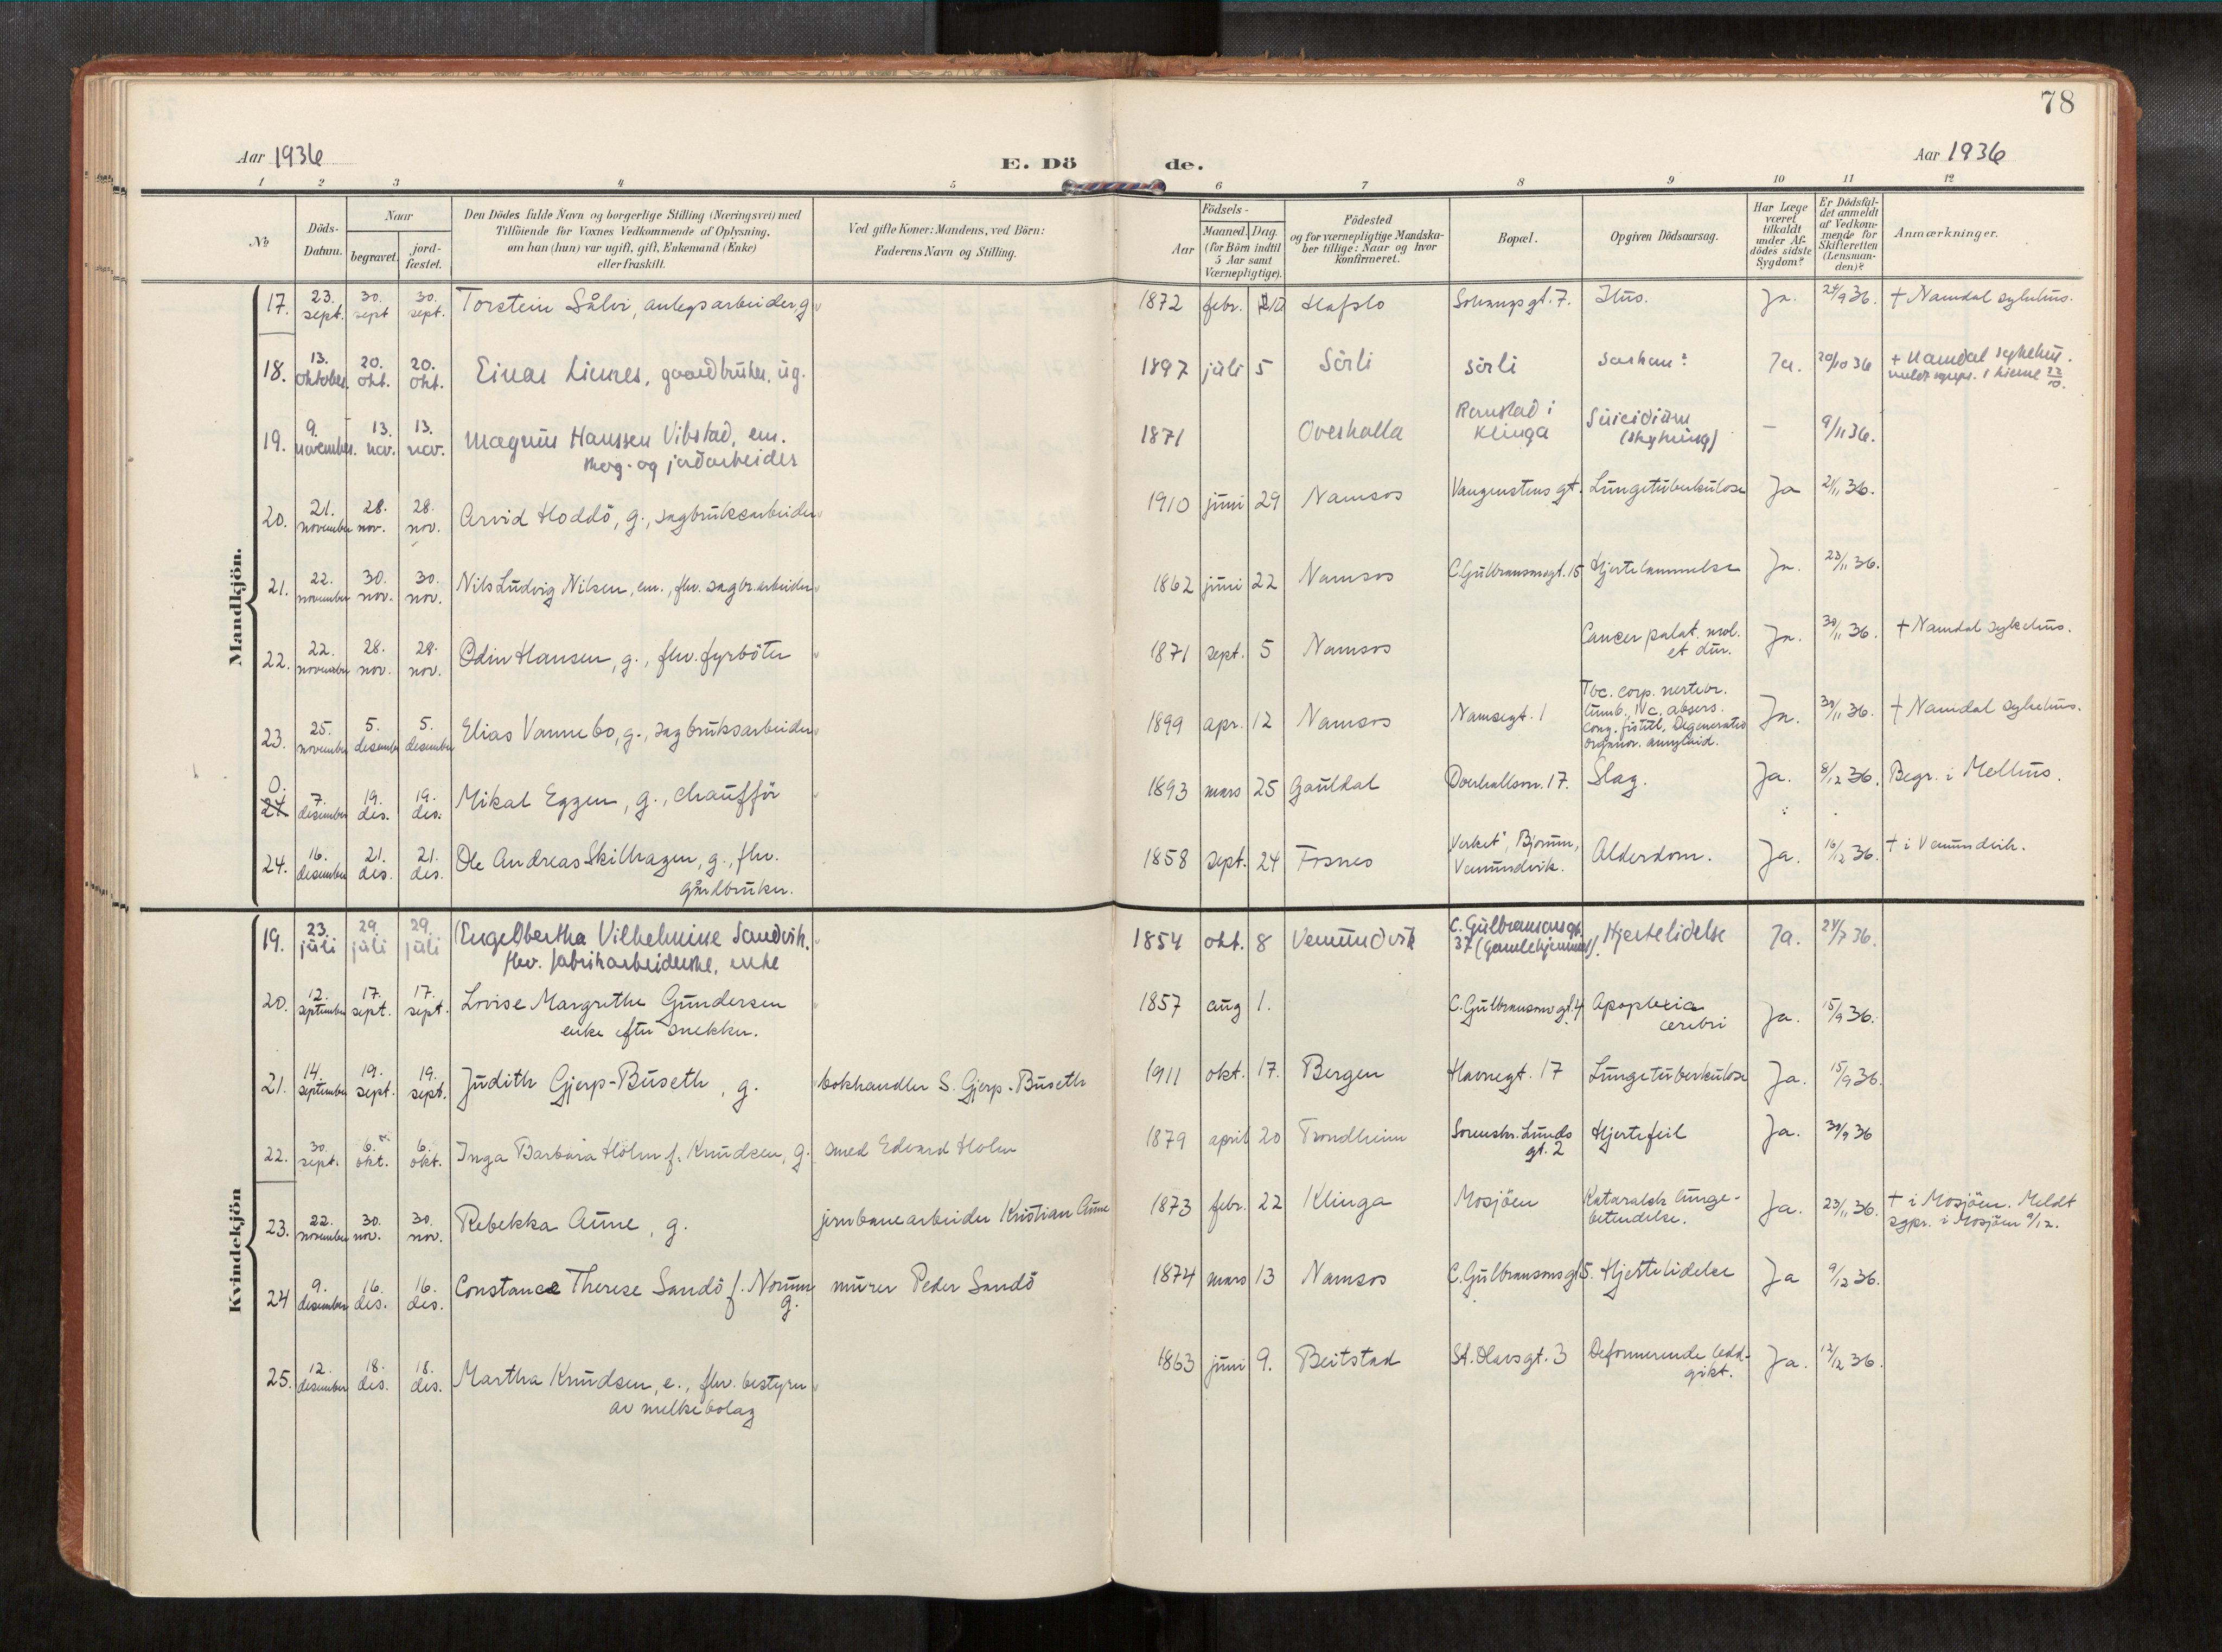 78
Aar 1936
E. Dö de.
Aar 1936
1 2 3 4 5 6 7 8 9 10 11 12
№
Döds-Datum.
Naar
begravet.
jord-fæstet.
Den Dödes fulde Navn og borgerlige Stilling (Næringsvei) med
Tilföiende for Voxnes Vedkommende af Oplysning,
om han (hun) var ugift, gift, Enkemand (Enke)
eller fraskilt.
Ved gifte Koner: Mandens, ved Börn:
Faderens Navn og Stilling.
Födsels-
Aar
Maaned. Dag.
(for Börn indtil
5 Aar samt
Værnepligtige).
Födested
og for værnepligtige Mandska-
ber tillige: Naar og hvor
konfirmeret.
Bopæl.
Opgiven Dödsaarsag.
Har Læge
været
tilkaldt
under Af-
dödes sidste
Sygdom?
Er Dödsfal-
det anmeldt
af Vedkom-
mende for
Skifteretten
(Lensman-
den)?
Anmærkninger.
Mandkjön.
17. 23. sept. 30. sept 30. sept. Torstein Sålvi, anlegsarbeider, g 1872 febr. Hafslo gt. 7. Ja. 24/9 36. + Namdal sykehus.
18. 13. oktober 20. okt. 20. okt. Einar Linnes, gaardbruker, ug. 1897 juli 5 Sörli Sörli Ja. 20/10 36 + Namdal sykehus.
19. 9. november. 13. nov. 13. nov. Magnus Hanssen Vibstad, em.
skog- og jordarbeider 1871 Overhalla Ramstad i
Klinga Suicidium
(skytning) – 9/11 36.
20. 21. november 28. nov. 28. nov. Arvid Hoddö, g., sagbruksarbeider 1910 juni 29 Namsos Vangenstens gt. Lungetuberkulose Ja 21/11 36.
21. 22. november 30. nov. 30. nov. Nils Ludvig Nilsen, em., fhv. sagbr.arbeider 1862 juni 22 Namsos C. Gulbransonsgt. 15 Hjertelammelse Ja. 23/11 36.
22. 22. november 28. nov. 28. nov. Odin Hansen, g., fhv. fyrböter 1871 sept. 5 Namsos Cancer palat. mol.
et dur. Ja. 30/11 36. + Namdal sykehus.
23. 25. november 5. desember 5. desember Elias Vannebo, g., sagbruksarbeider 1899 apr. 12 Namsos Namsegt. 1 Tbc. corp. vertebr.
lumb. IV c. absces.
cong. fistul, Degeneratio
organor. amyloid. Ja. 30/11 36. + Namdal sykehus.
0. 24 7. desember 19. des. 19. des. Mikal Eggen, g., chauffør 1893 mars 25 Gauldal Overhallsv. 17. Slag. Ja. 8/12 36. Begr. i Melhus.
24. 16. desember 21. des. 21. des. Ole Andreas Skilhagen, g., fhv.
gårdbruker. 1858 sept. 24 Fosnes Verket, Bjorum,
Vemundvik. Alderdom. Ja. 16/12 36. + i Vemundvik.
Kvindekjön
19. 23. juli 29. juli 29. juli Engelbertha Vilhelmine Sandvik,
fhv. fabrikarbeiderske, enke 1854 okt. 8 Vemundvik C. Gulbransonsgt.
37 (Gamlehjemmet). Hjertelidelse Ja. 24/7 36.
20. 12. september 17. sept. 17. sept. Lovise Margrethe Gundersen
enke efter snekker. 1857 aug 1. C. Gulbransonsgt. 4 Apoplexia
cerebri Ja. 15/9 36.
21. 14. september 19. sept. 19. sept. Judith Gjerp-Buseth, g. bokhandler S. Gjerp-Buseth 1911 okt. 17. Bergen Havnegt. 17 Lungetuberkulose Ja. 15/9 36.
22. 30. sept. 6. okt. 6. okt. Inga Barbara Holm f. Knudsen, g. smed Edvard Holm 1879 april 20 Trondheim Sorenskr. Lunds
gt. 2 Hjertefeil Ja. 30/9 36
23. 22. november 30. nov. 30. nov. Rebekka Aune, g. jernbanearbeider Kristian Aune 1873 febr. 22 Klinga Mosjöen Kataralsk lunge-
betendelse. Ja. 23/11 36. + i Mosjöen. Meldt
sgpr. i Mosjöen 9/12.
24 9. desember 16. des. 16. des. Constance Therese Sandö f. Norum
g. murer Peder Sandö 1874 mars 13 Namsos C. Gulbransonsgt 5. Hjertelidelse Ja 9/12 36.
25. 12. desember 18. des. 18. des. Martha Knudsen, e., fhv. bestyrer
av melkebolag 1863 juni 9. Beitstad St. Olavsgt. 3 Deformerende ledd-
gikt. Ja. 12/12 36.